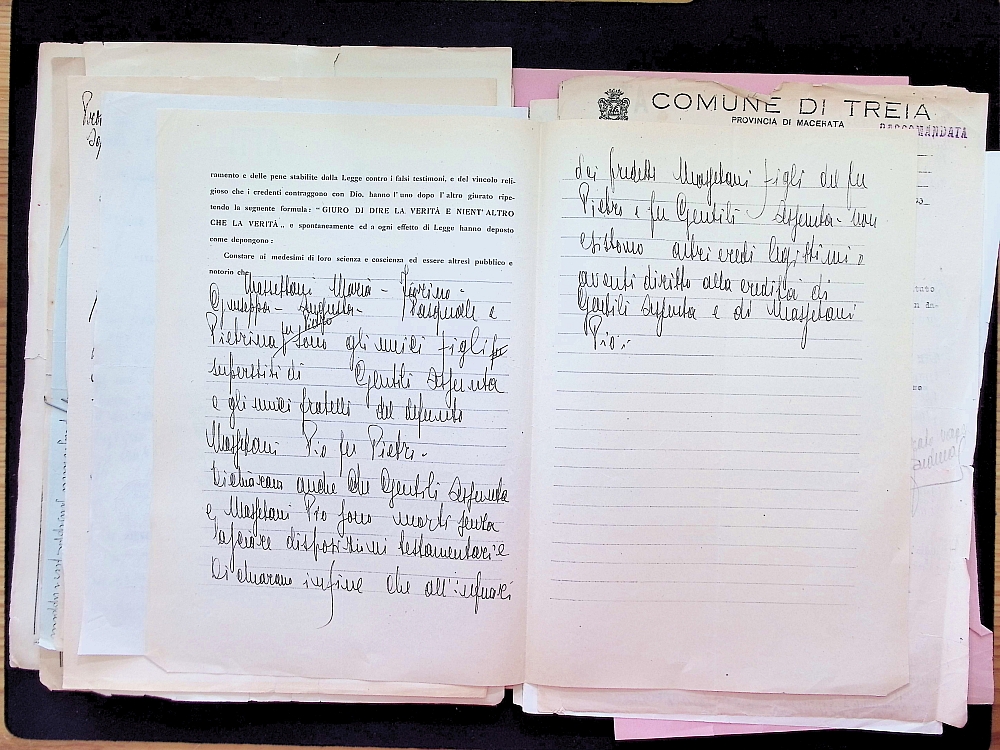 ramento e delle pene stabilite dalla Legge contro i falsi testimoni, e del vincolo reli-
gioso che i credenti contraggono con Dio. hanno l'uno dopo l'altro giurato ripe-
tendo la seguente formula: "GIURO DI DIRE LA VERITÀ E NIENT'ALTRO
CHE LA VERITÀ„ e spontaneamente ed a ogni effetto di Legge hanno deposto
come depongono:
Constare ai medesimi di loro scienza e coscienza ed essere altresì pubblico e
notorio che
Massetani Maria - Fiorino -
Giuseppa - Augusta - Pasquale e
fu Pietro
Pietrina sono gli unici figli
superstiti di Gentili Assunta
e gli unici fratelli del defunto
Massetani Pio fu Pietro -
Dichiarano anche che Gentili Assunta
e Massetani Pio sono morti senza
lasciare disposizioni testamentarie
Dichiarano infine che all'infuori
COMUNE DI TREIA
PROVINCIA DI MACERATA
RACCOMANDATA
dei predetti Massetani figli del fu
Pietro e fu Gentili Assunta - non
esistono altri eredi legittimi o
aventi diritto alla eredità di
Gentili Assunta e di Massetani
Pio